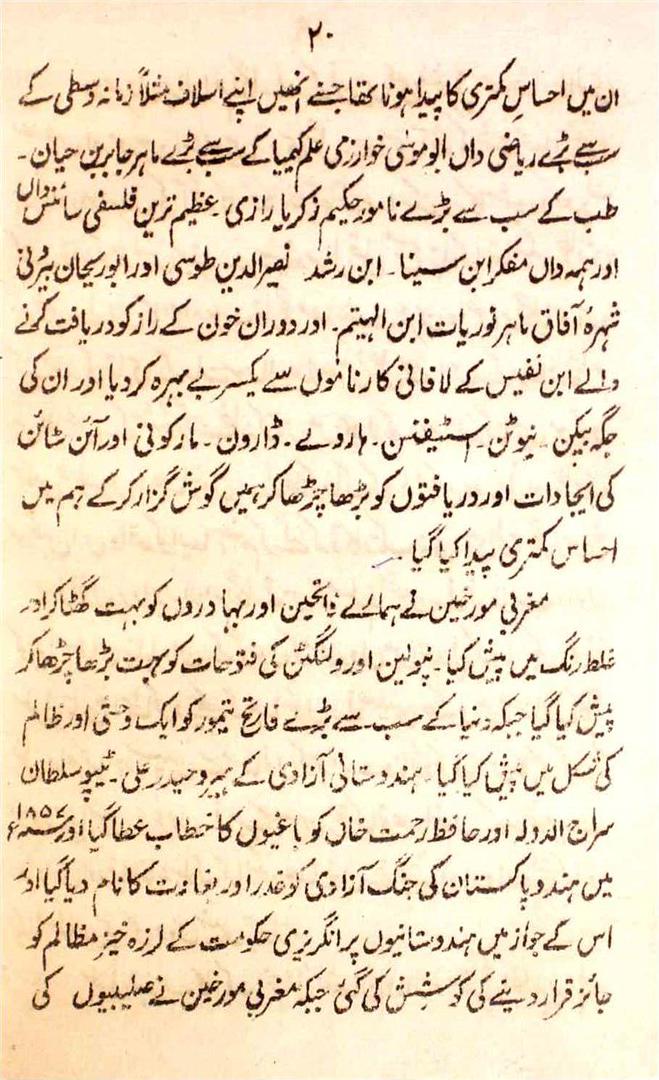 ۲۰
ان میں احساسِ کمتری کا پیدا ہونا تھا جسنے انھیں اپنے اسلاف مثلاً زمانہ وسطی کے
سب سے بڑے ریاضی داں ابو موسیٰ خوارزمی علم کیمیا کے سب سے بڑے ماہر جابر بن حیان۔
طب کے سب سے بڑے نامور حکیم زکریا رازی۔ عظیم ترین فلسفی سائنس داں
اور ہمہ داں مفکر ابن سینا۔ ابن رشد نصیر الدین طوسی اور ابو ریحان بیرونی
شہرۂ آفاق ماہر نوریات ابن الہیثم۔ اور دوران خون کے راز کو دریافت کرنے
والے ابن نفیس کے لافانی کارناموں سے یکسر بے بہرہ کر دیا اور ان کی
جگہ بیکن۔ نیوٹن۔ اسٹیفنسن۔ ہاروے۔ ڈارون۔ مارکونی اور آئن شٹائن
کی ایجادات اور دریافتوں کو بڑھا چڑھا کر ہمیں گوش گزار کر کے ہم میں
احساس کمتری پیدا کیا گیا۔
مغربی مورخین نے ہمارے فاتحین اور بہادروں کو بہت گھٹا کر اور
غلط رنگ میں پیش کیا۔ نپولین اور ولنگٹن کی فتوحات کو بہت بڑھا چڑھا کر
پیش کیا گیا جبکہ دنیا کے سب سے بڑے فاتح تیمور کو ایک وحشی اور ظالم
کی شکل میں پیش کیا گیا۔ ہندوستانی آزادی کے ہیرو حیدر علی۔ ٹیپو سلطان
سراج الدولہ اور حافظ رحمت خاں کو باغیوں کا خطاب عطا گیا اور ۱۸۵۷ء
میں ہند و پاکستان کی جنگ آزادی کو غدر اور بغاوت کا نام دیا گیا اور
اس کے جواز میں ہندوستانیوں پر انگریزی حکومت کے لرزہ خیز مظالم کو
جائز قرار دینے کی کوشش کی گئی جبکہ مغربی مورخین نے صلیبیوں کی